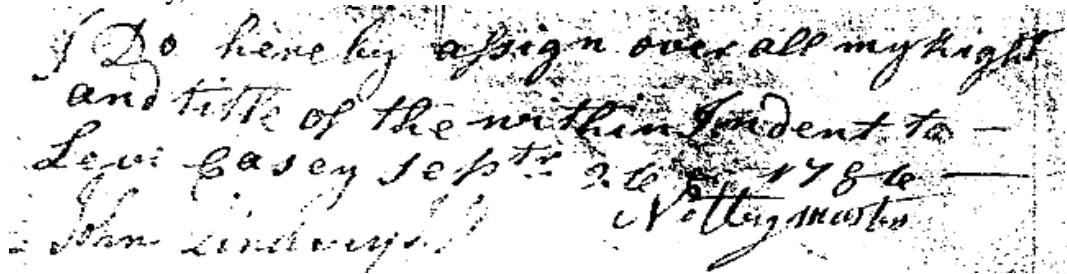 I Do here by assign over all my Right
and title of the within Indent to —
Levi Casey Septr 26 1786 —
John